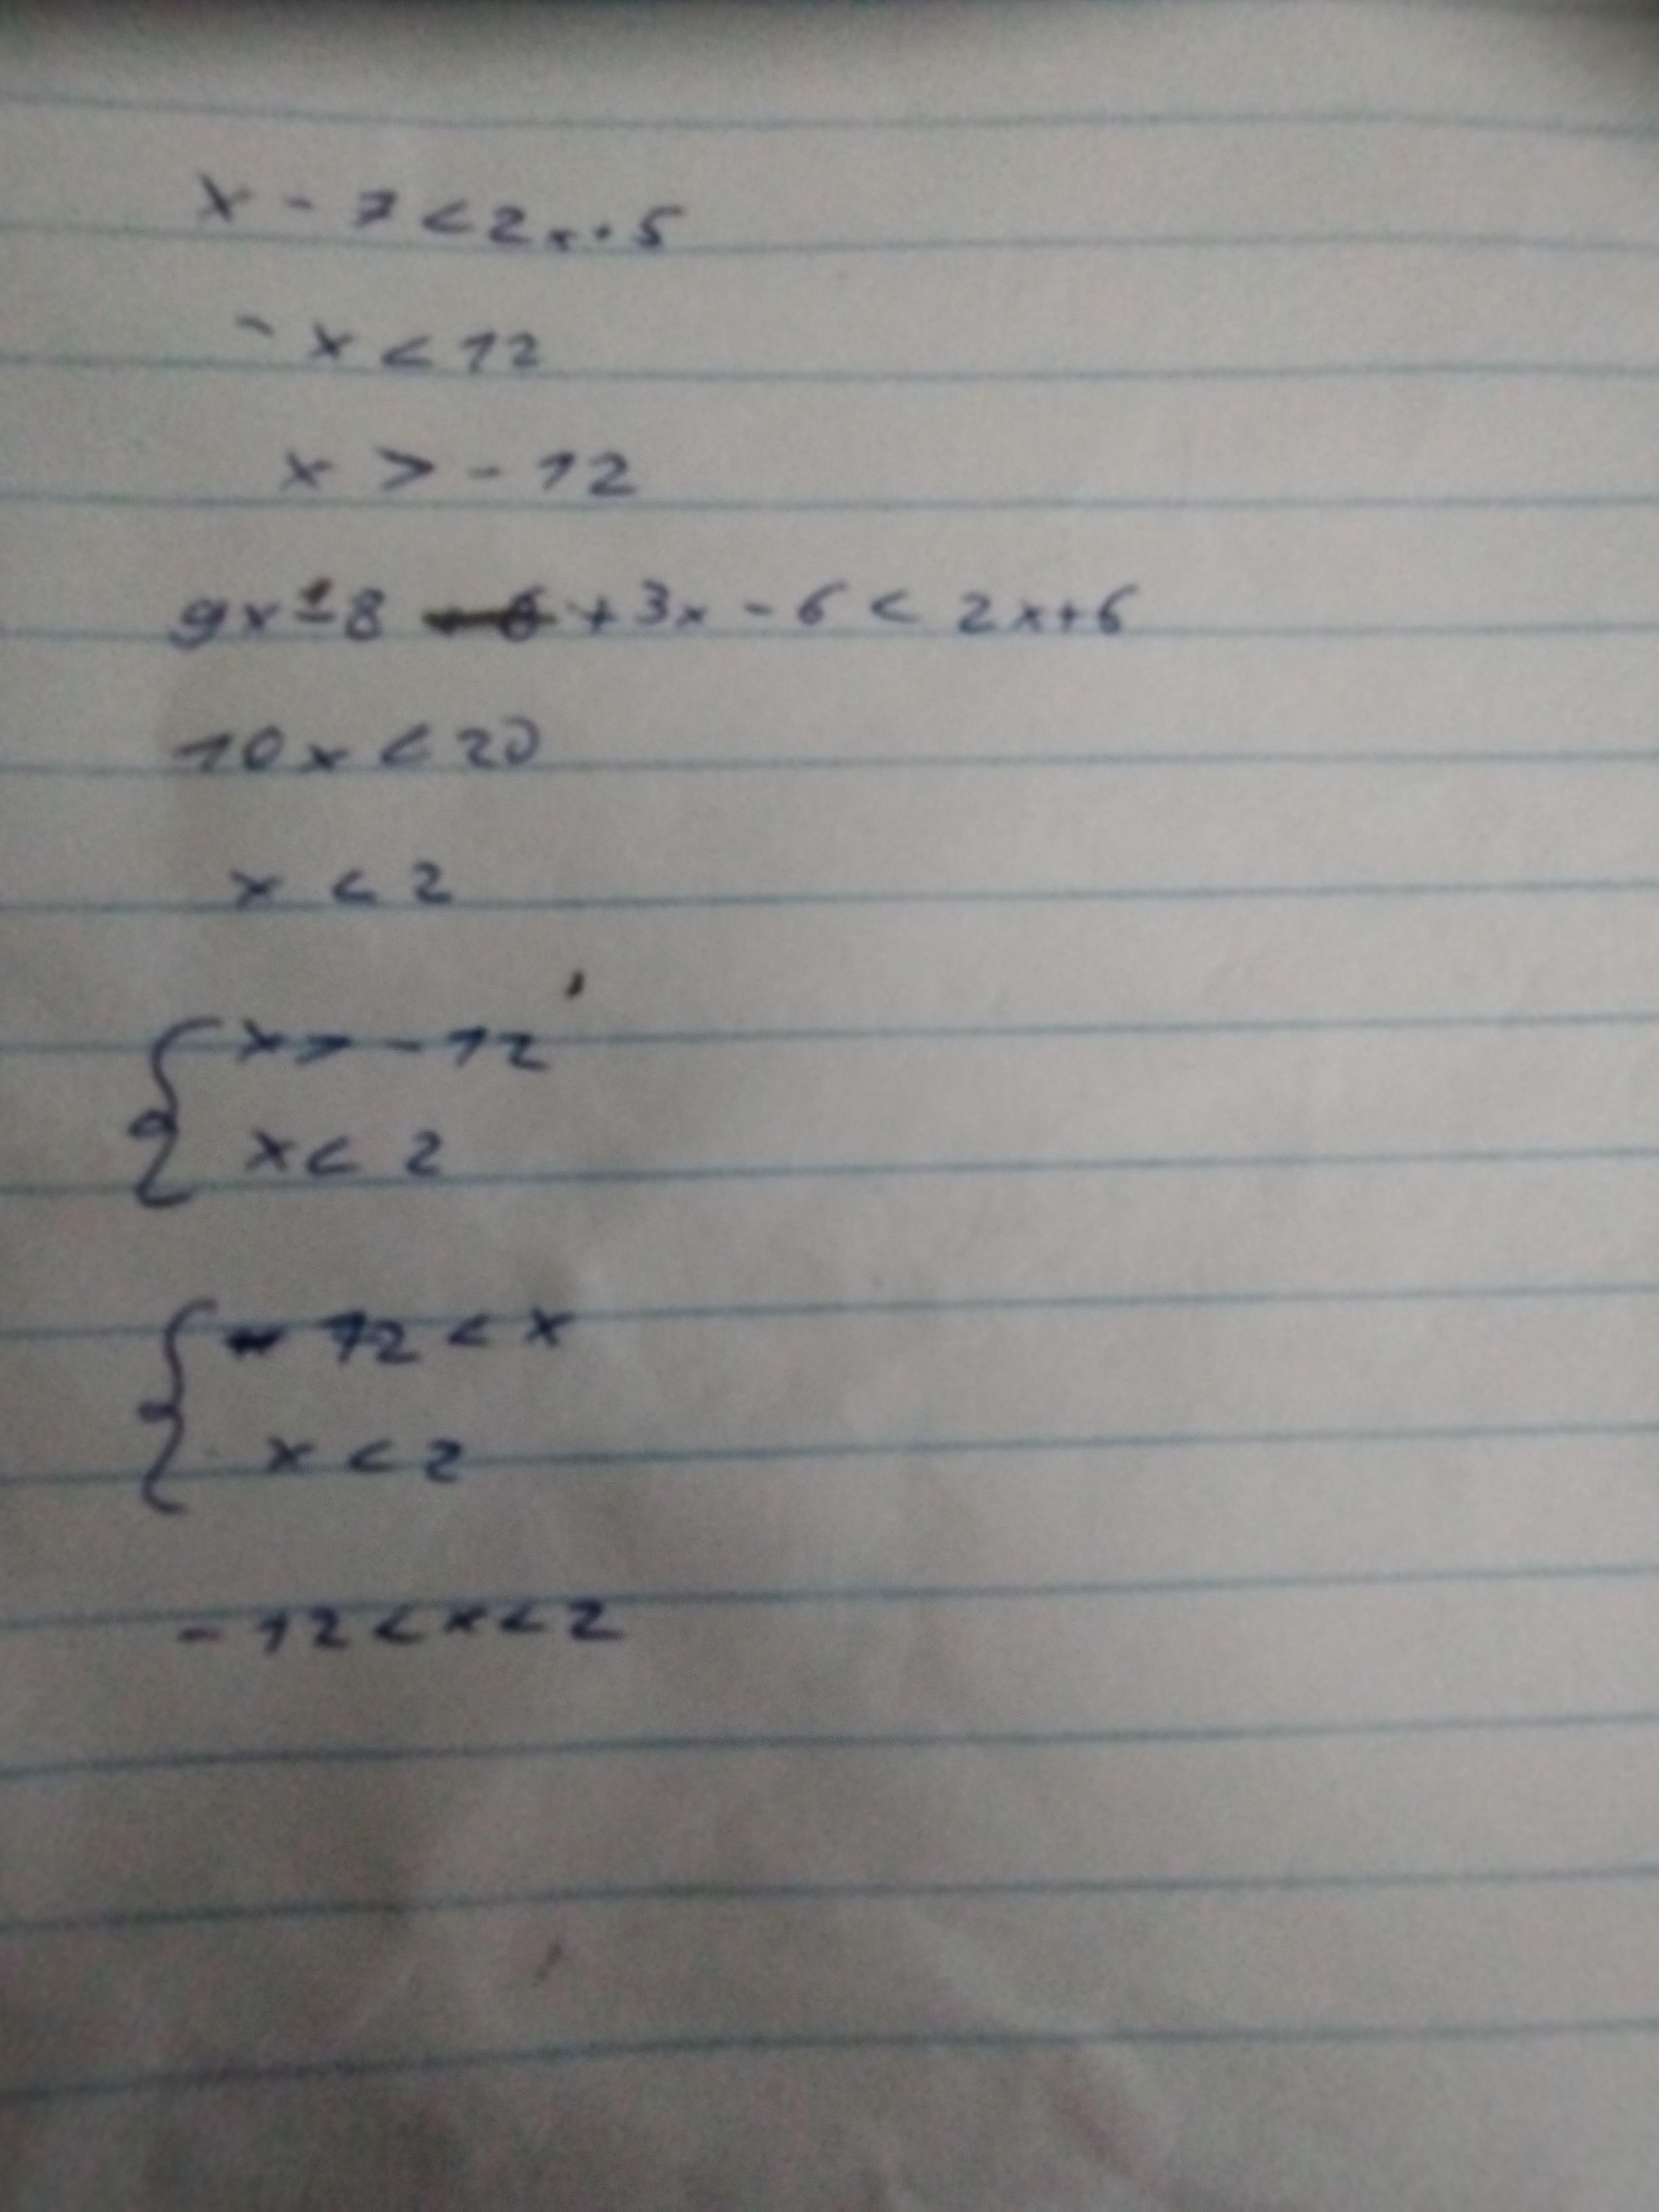 x - 7 < 2x + 5
- x < 12
x > - 12
9x - 8 + 3x - 6 < 2x + 6
10x < 20
x < 2
{ x > - 12
x < 2
{ - 12 < x
x < 2
- 12 < x < 2